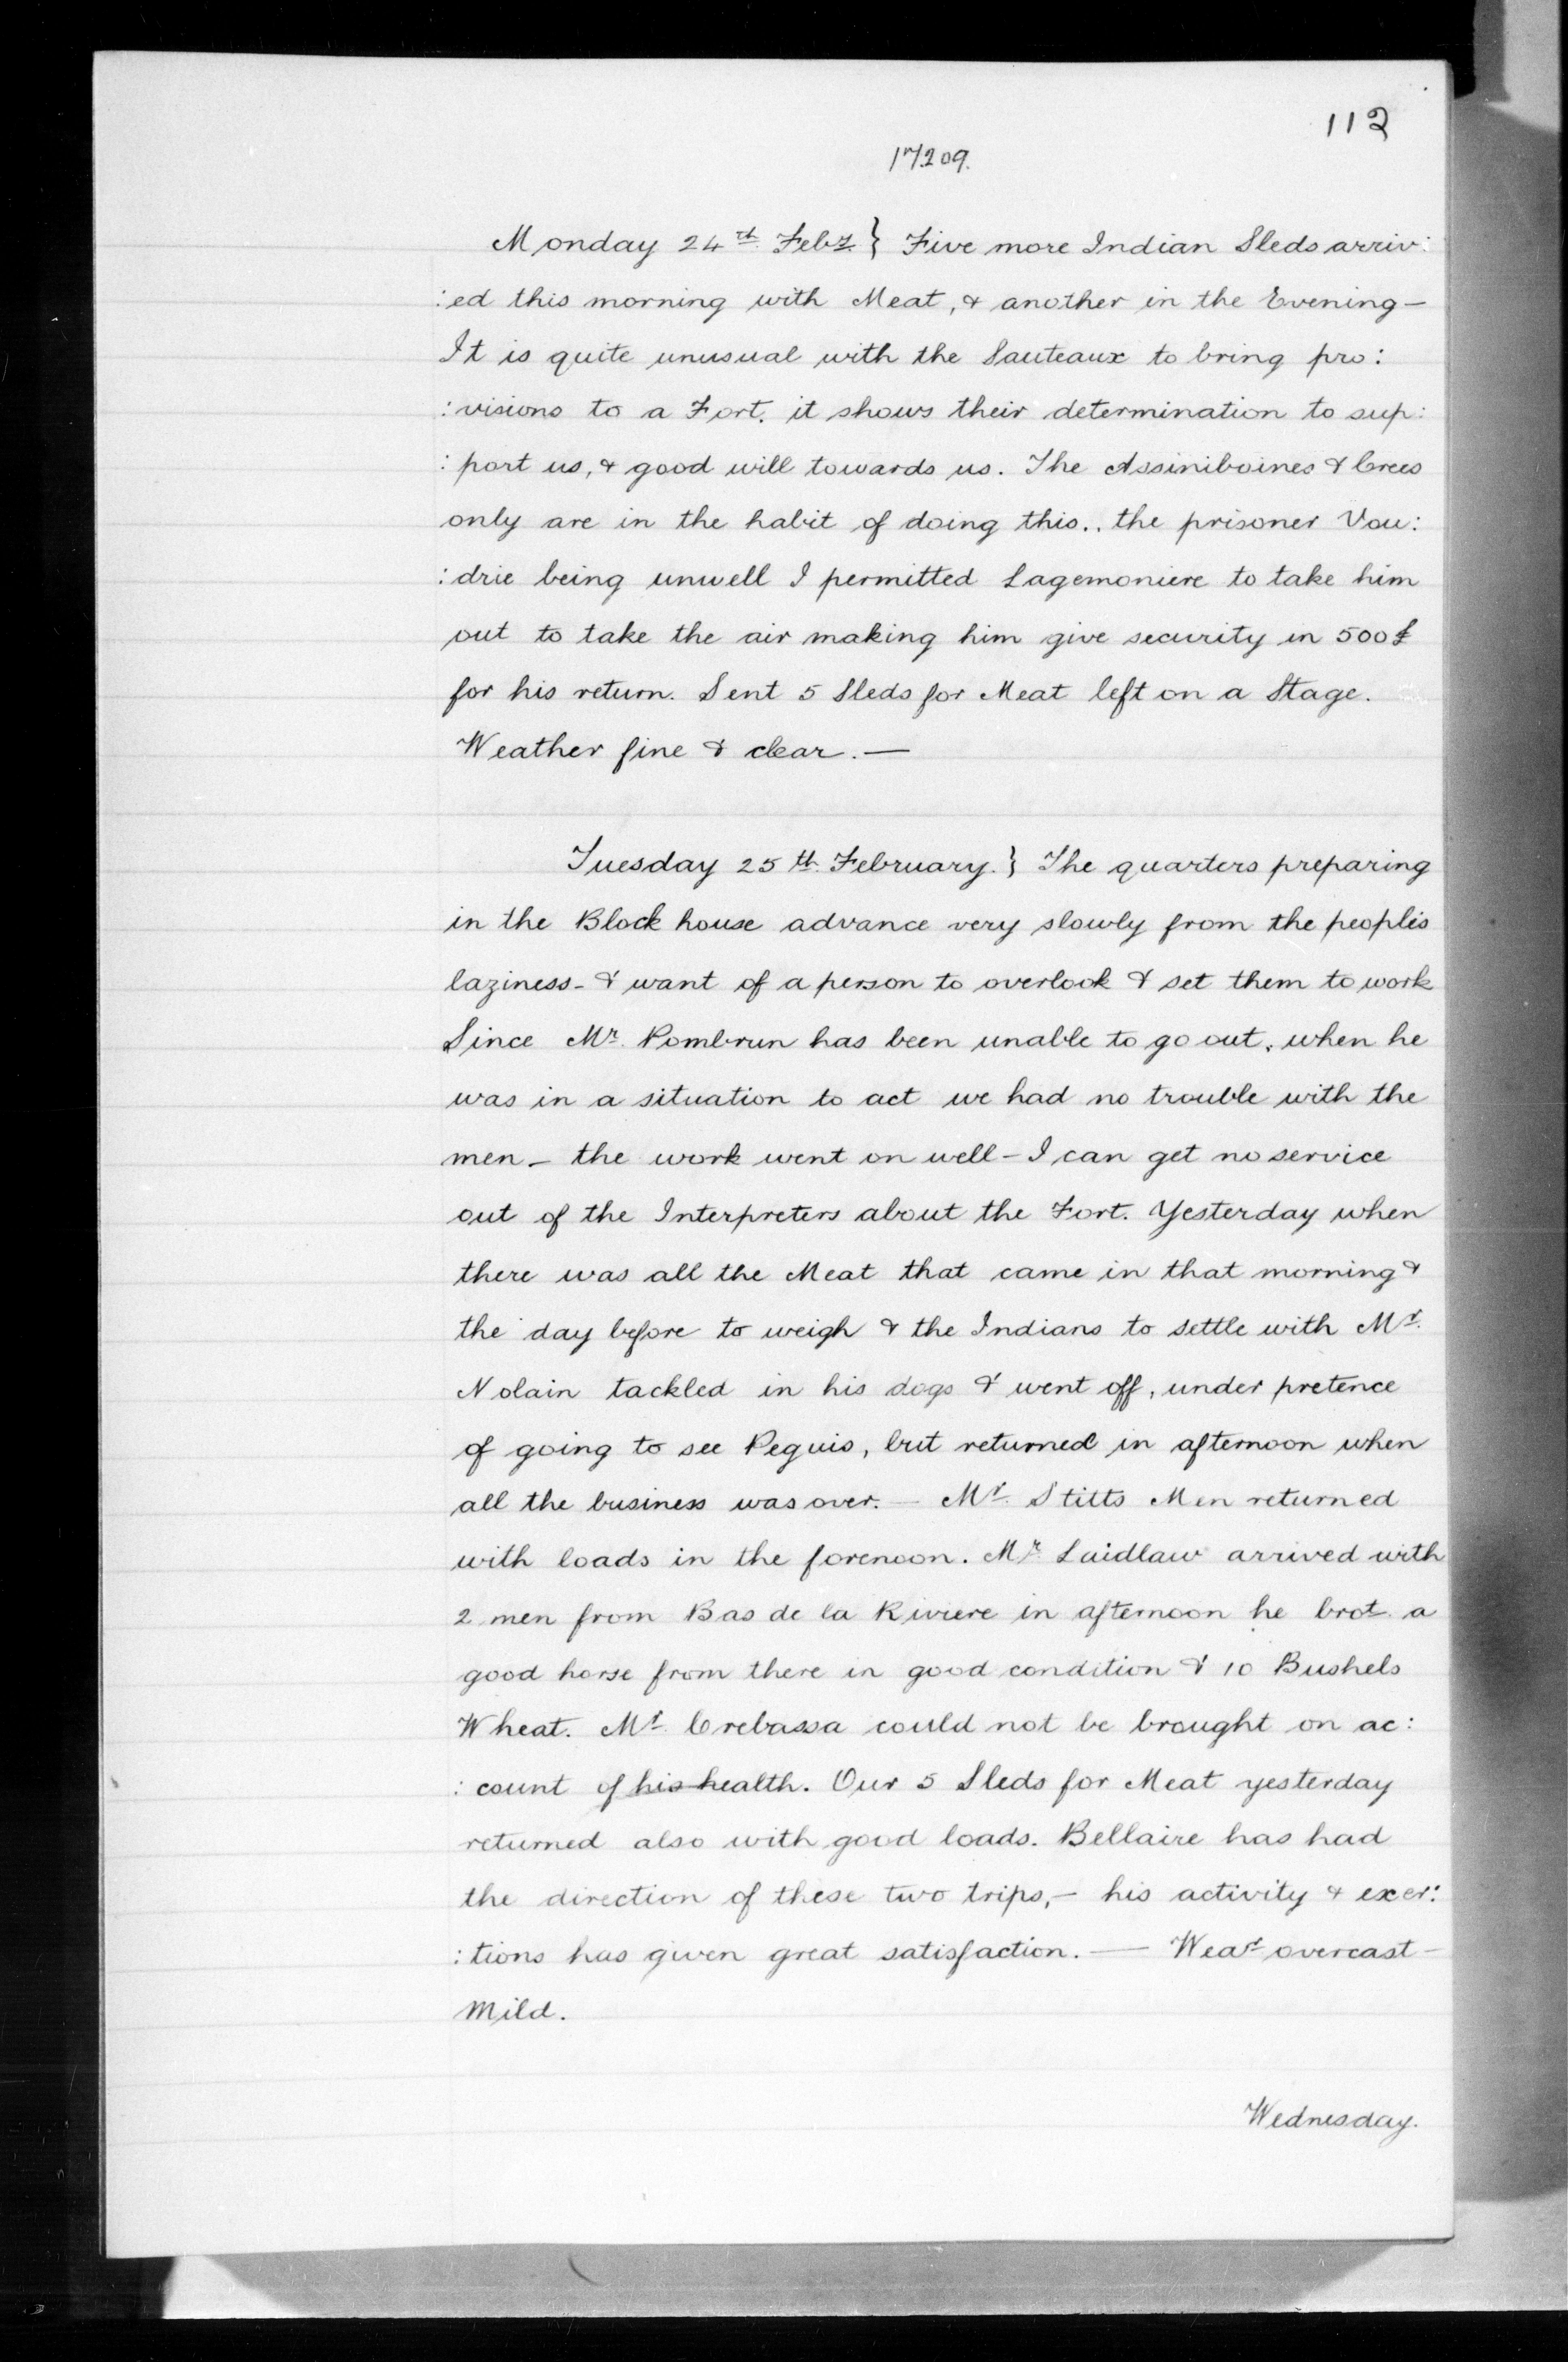 112
17209.
Monday 24th. Feby. } Five more Indian Sleds arriv:
:ed this morning with Meat, & another in the Evening—
It is quite unusual with the Sauteaux to bring pro:
:visions to a Fort. it shows their determination to sup:
:port us, & good will towards us. The Assiniboines & Crees
only are in the habit of doing this.. the prisoner Vau:
:drie being unwell I permitted Lagemoniere to take him
out to take the air making him give security in 500£
for his return. Sent 5 Sleds for Meat left on a Stage.
Weather fine & clear.—
Tuesday 25th. February. } The quarters preparing
in the Block house advance very slowly from the people's
laziness- & want of a person to overlook & set them to work
Since Mr. Pombrun has been unable to go out. when he
was in a situation to act we had no trouble with the
men— the work went on well— I can get no service
out of the Interpreters about the Fort. Yesterday when
there was all the Meat that came in that morning &
the day before to weigh & the Indians to settle with Mr.
Nolain tackled in his dogs & went off, under pretence
of going to see Peguis, but returned in afternoon when
all the business was over.— Mr. Stitts Men returned
with loads in the forenoon. Mr. Laidlaw arrived with
2 men from Bas de la Riviere in afternoon he brot. a
good horse from there in good condition & 10 Bushels
Wheat. Mr. Crebassa could not be brought on ac:
:count of his health. Our 5 Sleds for Meat yesterday
returned also with good loads. Bellaire has had
the direction of these two trips,— his activity & exer:
:tions has given great satisfaction.— Wear. overcast—
Mild.
Wednesday.